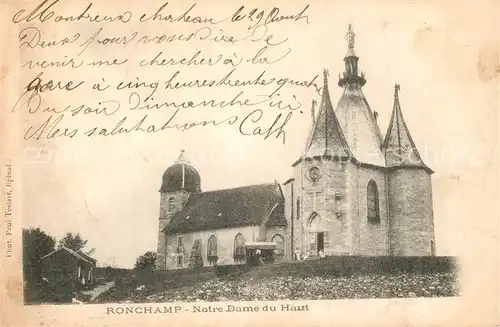 Montreux chateau le 29 Aout
Deux pour vous dire de
venir me chercher à la
gare à cinq heures trente
du soir dimanche ici
Mers salutations Cath
Phot. Paul Testart, Epinal
RONCHAMP - Notre Dame du Haut